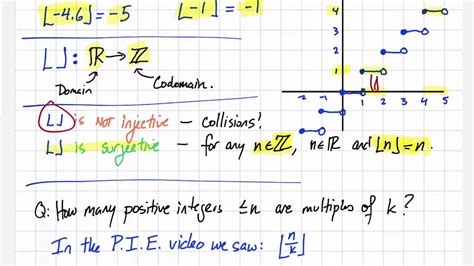 ⌊-4.6⌋ = -5 ⌊-1⌋ = -1
⌊⌋: ℝ → ℤ
Domain Codomain.
⌊⌋ is Not injective – collisions!
⌊⌋ is surjective – for any n∈ℤ, n∈ℝ and ⌊n⌋=n.
4
3
2
1
-2 -1 1 2 3 4 5
Q: How many positive integers ≤n are multiples of k?
In the P.I.E. video we saw: ⌊n/k⌋